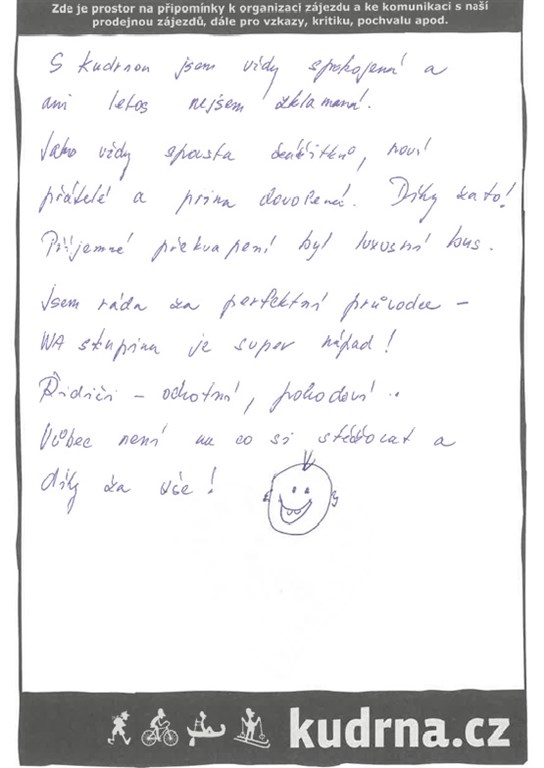 Zde je prostor na připomínky k organizaci zájezdu a ke komunikaci s naší
prodejnou zájezdů, dále pro vzkazy, kritiku, pochvalu apod.
S Kudrnou jsem vždy spokojená a
ani letos nejsem zklamaná.
Jako vždy spousta zážitků, noví
přátelé a prima dovolená. Díky za to!
Příjemné překvapení byl luxusní bus.
Jsem ráda za perfektní průvodce –
WA skupina je super nápad!
Řidiči – ochotní, pohodoví ..
Vůbec není na co si stěžovat a
díky za vše!
kudrna.cz